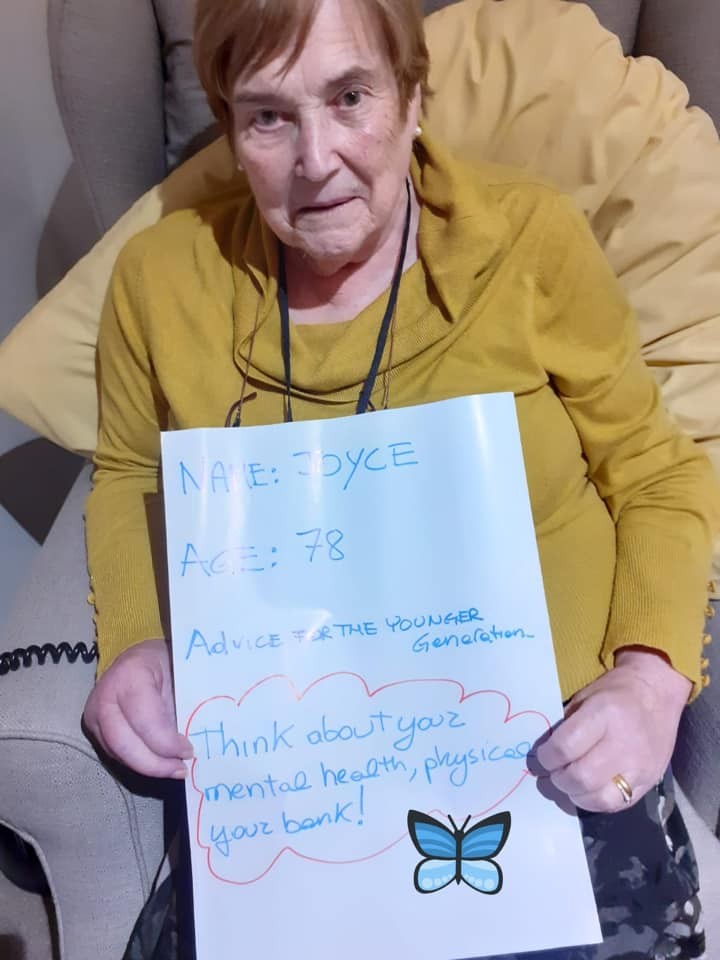 NAME: JOYCE
AGE: 78
ADVICE FOR THE YOUNGER
Generation
Think about your
mental health, physical
your bank!